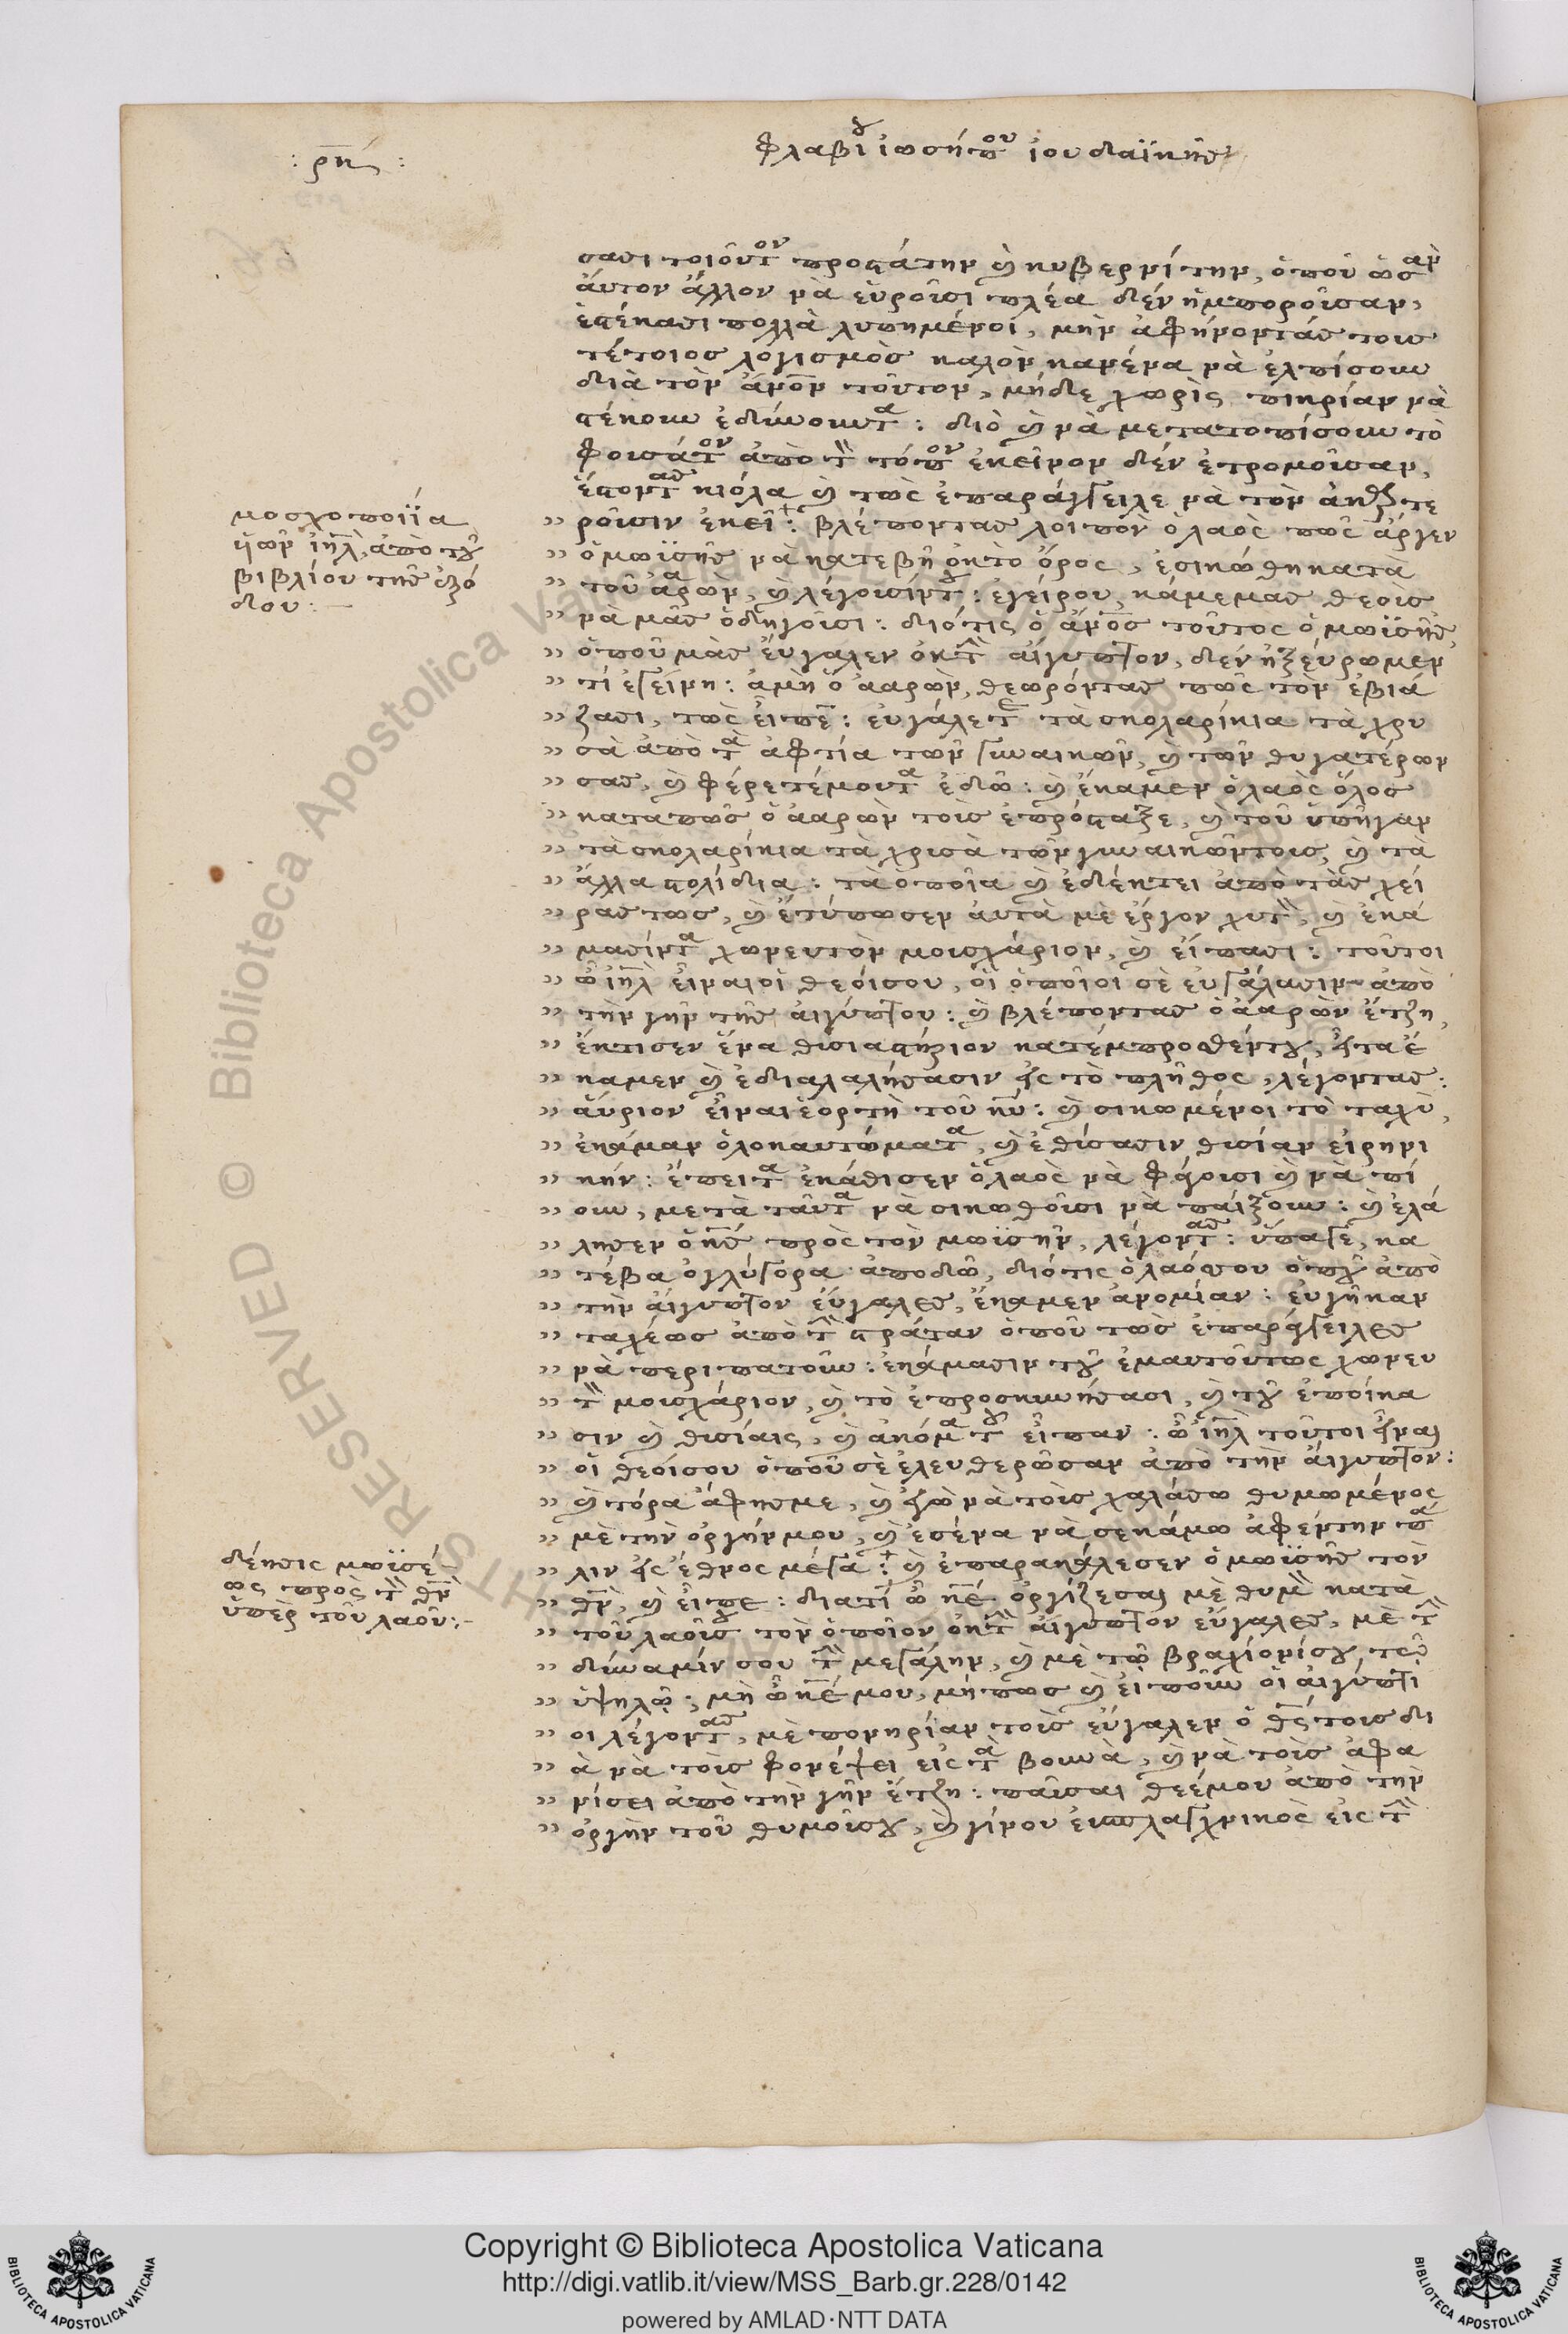 : ρκή :
Φλαβίου ἰωσήπου ἰουδαϊκῆς
σασι τοιοῦτον προστάτην καὶ κυβερνίτην, ὁποῦ ὡσὰν
ἀυτον ἄλλον νὰ εὑροῦσι πλέα δὲν ἠμποροῦσαν,
ἐστέκασι πολλὰ λυπημένοι, μὴν ἀφήνοντάς τους
τέτοιος λογισμὸς καλὸν κανένα νὰ ἐλπίσουν
διὰ τὸν ἄνον τοῦτον, μήδε χωρὶς πικρίαν νὰ
στέκουν ἐδύνουντα : διὸ καὶ νὰ μετατοπίσουν τὸ
φουσάτον ἀπὸ τὸν τόπον ἐκεῖνον δὲν ἐτρομοῦσαν,
ἔστοντας κιόλα καὶ τῶς ἐπαράγγειλε νὰ τὸν ἀκαρτε
ροῦσιν ἐκεῖ : βλέποντας λοιπὸν ὁ λαὸς πῶς ἄργεν
ὁ μωϋσῆς νὰ κατεβῆ ὀκτὸ ὄρος, ἐσικώθη κατὰ
τοῦ ἀαρὼν, καὶ λέγουσίντου : ἐγείρου, κάμε μας θεους
νὰ μᾶς ὁδηγοῦσι : διότις ὁ ἄνος τοῦτος ὁ μωϋσῆς
ὁποῦ μὰς ἔυγαλεν ὀκτὴν αἴγυπτον, δὲν ἠξεύρωμεν
τί ἐγείνη : ἀμὴ ὁ ἀαρὼν, θεωρόντας πῶς τὸν ἐβιά
ζασι, τῶς εἶπε : ευγάλετε τὰ σκολαρίκια τὰ χρυ
σὰ ἀπὸ τὰ ἀφτία τῶν γυναικῶν, καὶ τῶν θυγατέρων
σας, καὶ φέρετέμουτα ἐδῶ : καὶ ἔκαμεν ὁ λαὸς ὅλος
καταπῶς ὁ ἀαρὼν τοὺς ἐπρόσταξε, καὶ τοῦ ὑπῆγαν
τὰ σκολαρίκια τὰ χρισὰ τῶν γυναικῶντους, καὶ τὰ
ἄλλα στολίδια : τὰ ὁποῖα καὶ ἐδέκτει ἀπὸ τὰς χεί
ρας τως, καὶ ἐτύπωσεν ἀυτὰ μὲ ἔργον χυτὸν, καὶ ἐκά
μασίντα χωνευτὸν μουσχάριον, καὶ εἴπασι : τοῦτοι
ὦ ἰηλ εἶναι οἱ θεοίσου, οἱ ὁποῖοι σὲ ευγάλασιν ἀπὸ
τὴν γῆν τῆς ἀιγύπτου : καὶ βλέποντας ὁ ἀαρὼν ἔτζη,
ἔκτισεν ἕνα θυσιαστήριον κατέμπροσθέντου, εἶτα ἔ
καμεν καὶ ἐδιαλαλήσασιν εἰς τὸ πλῆθος, λέγοντας :
ἀύριον εἶναι ἑορτὴ τοῦ κυ : καὶ σικωμένοι τὸ ταχὺ,
ἐκάμαν ὁλοκαυτώματα, καὶ ἐθίσασιν θισίαν εἰρηνι
κήν : ἔπειτα ἐκάθισεν ὁ λαὸς νὰ φάουσι καὶ νὰ πί
ουν, μετὰ ταῦτα νὰ σικωθοῦσι νὰ παίξουν : καὶ ἐλά
λησεν ὁ κς πρὸς τὸν μωϋσῆν, λέγοντας : ὕπαγε, κα
τέβα ὀγλύγορα ἀποδῶ, διότις ὁ λαόσου ὁποῦ ἀπὸ
τὴν ἀίγυπτον ἔυγαλες, ἔκαμεν ἀνομίαν : ευγῆκαν
ταχέως ἀπὸ τὴν στράταν ὁποῦ τῶς ἐπαράγγειλες
νὰ περιπατοῦν : ἐκάμασιν τοῦ ἐμαυτοῦντως χωνευ
τὸν μουσχάριον, καὶ τὸ ἐπροσκυνήσασι, καὶ τοῦ ἐποίκα
σιν καὶ θυσίαις, καὶ ἀκόμα τοῦ εἶπαν : ὦ ἰηλ τοῦτοι εἶναι
οἱ θεοίσου ὁποῦ σὲ ἐλευθερῶσαν ἀπὸ τὴν ἀίγυπτον :
καὶ τόρα ἄφησμε, καὶ ἐγὼ νὰ τοὺς χαλάσω θυμωμένος
μὲ τὴν ὀργήνμου, καὶ ἐσένα νὰ σεκάμω ἀφέντην πά
λιν εἰς ἔθνος μέγα : καὶ ἐπαρακάλεσεν ὁ μωϋσῆς τὸν
θν, καὶ εἶπε : διατί ὦ κε ὀργίζεσαι μὲ θυμὸν κατὰ
τοῦ λαοῦσου τὸν ὁποῖον ὀκτὴν ἀίγυπτον ἔυγαλες, μὲ τὴν
δύναμίν σου τὴν μεγάλην, καὶ μὲ τῶ βραχιονίσου τῶ
ὑψηλῶ ; μὴ ὦ κέ μου, μήπως καὶ εἰποῦν οἱ ἀιγύπτι
οι λέγοντας, μὲ πονηρίαν τοὺς ἔυγαλεν ὁ θς τους δι
ὰ νὰ τοὺς φονέψει εἰς τὰ βουνὰ, καὶ νὰ τοὺς ἀφα
νίσει ἀπὸ τὴν γῆν ἔτζη : παῦσαι θεέμου ἀπὸ τὴν
ὀργὴν τοῦ θυμοῦσου, καὶ γίνου ἐυσπλαγχνικὸς εἰς τὴν
μοσχοποιΐα
τῶν ἰηλ, ἀπὸ τοῦ
βιβλίου τῆς ἐξό
δου :
δέησις μωϋσέ
ως πρὸς τὸν θν
ὑπὲρ τοῦ λαοῦ :
Copyright © Biblioteca Apostolica Vaticana
http://digi.vatlib.it/view/MSS_Barb.gr.228/0142
powered by AMLAD·NTT DATA